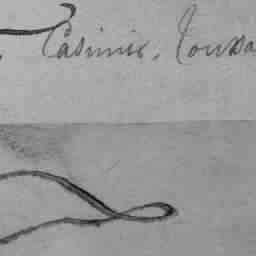 Casimir. Toussa